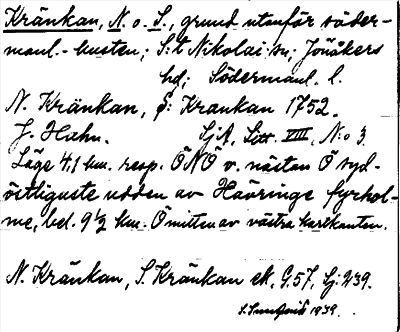 Kränkan, N. o. S., grund utanför söder-
manl.-kusten; S:t Nikolai sn, Jönåkers
hd; Södermanl. l.
N. Kränkan, på: Krankan 1752.
J. Hahn. SjA, Litt. VIII, N:o 3.
Läge 4,1 km. resp. ÖNÖ v. nästan Ö syd-
östligaste udden av Hävringe fyrhol-
me, bel. 9 1/2 km. Ö mitten av västra kartkanten.
N. Kränkan, S. Kränkan ek, G.57, Sj: 239.
1939.